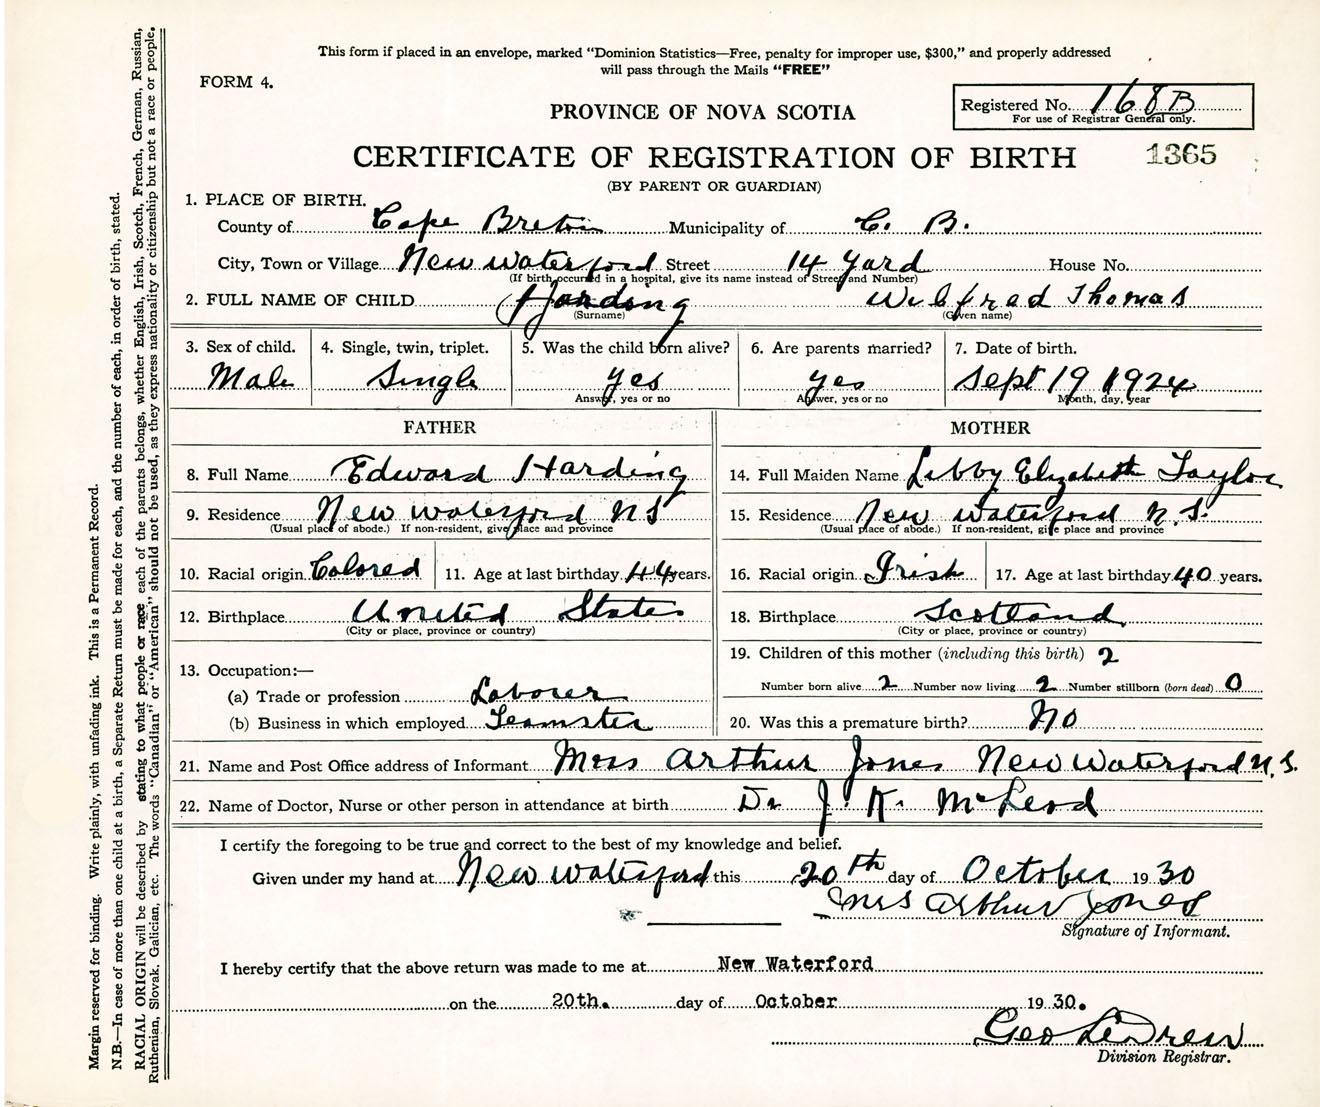 This form if placed in an envelope, marked "Dominion Statistics—Free, penalty for improper use, $300," and properly addressed
will pass through the Mails "FREE"
FORM 4.
Registered No. 168B
For use of Registrar General only.
PROVINCE OF NOVA SCOTIA
CERTIFICATE OF REGISTRATION OF BIRTH 1365
(BY PARENT OR GUARDIAN)
1. PLACE OF BIRTH.
County of Cape Breton Municipality of C. B.
City, Town or Village New Waterford Street 14 Yard House No.
(If birth occurred in a hospital, give its name instead of Street and Number)
2. FULL NAME OF CHILD Harding Wilfred Thomas
(Surname) (Given name)
3. Sex of child. 4. Single, twin, triplet. 5. Was the child born alive? 6. Are parents married? 7. Date of birth.
Male Single yes yes Sept 19 1924
Answer, yes or no Answer, yes or no Month, day, year
FATHER MOTHER
8. Full Name Edward Harding 14. Full Maiden Name Libby Elizabeth Taylor
9. Residence New Waterford N S 15. Residence New Waterford N. S.
(Usual place of abode.) If non-resident, give place and province (Usual place of abode.) If non-resident, give place and province
10. Racial origin Colored 11. Age at last birthday 44 years. 16. Racial origin Irish 17. Age at last birthday 40 years.
12. Birthplace United States 18. Birthplace Scotland
(City or place, province or country) (City or place, province or country)
13. Occupation:— 19. Children of this mother (including this birth) 2
(a) Trade or profession Laborer Number born alive 2 Number now living 2 Number stillborn (born dead) 0
(b) Business in which employed Teamster 20. Was this a premature birth? No
21. Name and Post Office address of Informant Mrs Arthur Jones New Waterford N. S.
22. Name of Doctor, Nurse or other person in attendance at birth Dr J. K. McLeod
I certify the foregoing to be true and correct to the best of my knowledge and belief.
Given under my hand at New Waterford this 20th day of October 1930
Mrs Arthur Jones
Signature of Informant.
I hereby certify that the above return was made to me at New Waterford
on the 20th. day of October 1930.
Geo
Division Registrar.
Margin reserved for binding. Write plainly, with unfading ink. This is a Permanent Record.
N.B.—In case of more than one child at a birth, a Separate Return must be made for each, and the number of each, in order of birth, stated.
RACIAL ORIGIN will be described by stating to what people or race each of the parents belongs, whether English, Irish, Scotch, French, German, Russian,
Ruthenian, Slovak, Galician, etc. The words "Canadian" or "American" should not be used, as they express nationality or citizenship but not a race or people.